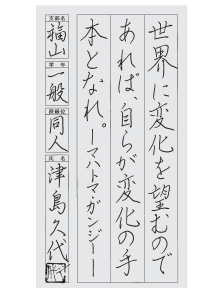 世界に変化を望むので
あれば、自らが変化の手
本となれ。ーマハトマ・ガンジーー
支部名
福山
学年
一般
段級位
同人
氏名
津島久代